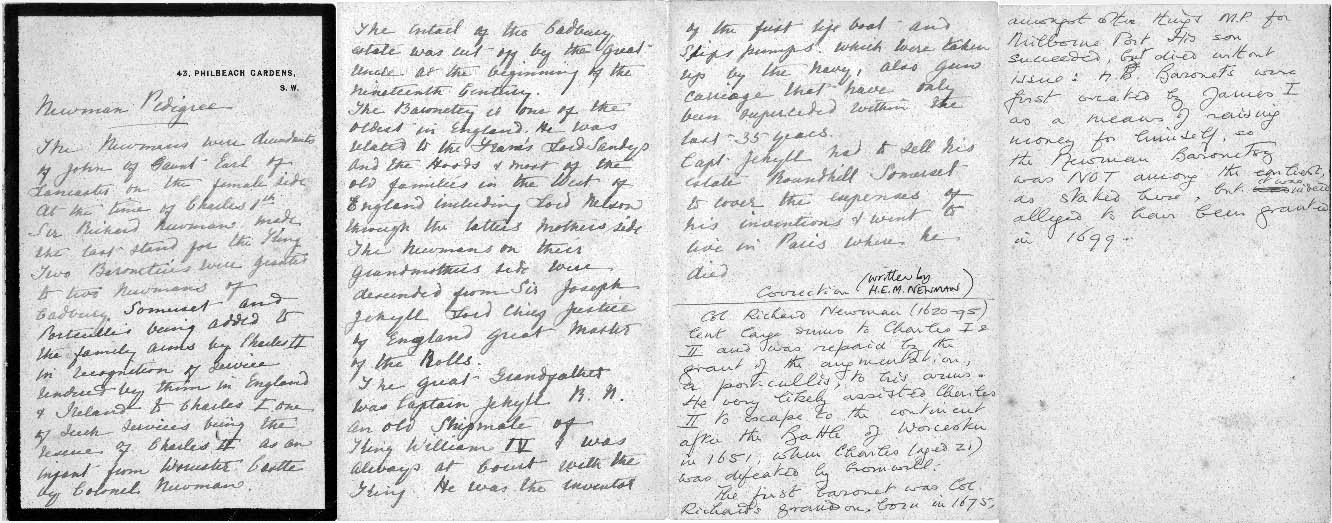 43, PHILBEACH GARDENS,
S. W.
Newman Pedigree
The Newmans were decendants
of John of Gaunt Earl of
Lancaster on the female side
At the time of Charles 1st
Sir Richard Newman made
the last stand for the King
Two Baronetcies were granted
to two Newmans of
Cadbury Somerset and
Portcullis being added to
the family arms by Charles II
in recognition of service
rendered by them in England
& Ireland to Charles I one
of such services being the
rescue of Charles II as an
infant from Worcester Castle
by Colonel Newman.
The entail of the Cadbury
estate was cut off by the Great
Uncle at the beginning of the
nineteenth Century.
The Baronetcy is one of the
oldest in England. He was
related to the Lord Sandys
and the Hoods & most of the
old families in the West of
England including Lord Nelson
through the latters mothers side
The Newmans on their
Grandmothers side were
decended from Sir Joseph
Jekyll Lord Chief Justice
of England Great Master
of the Rolls.
The Great Grandfather
was Captain Jekyll R. N.
an old Shipmate of
King William IV & was
always at Court with the
King He was the inventor
of the first life boat and
Ships pumps which were taken
up by the Navy, also gun
carriage that have only
been superceded within the
last 35 years.
Capt. Jekyll had to sell his
estate Roundhill Somerset
to cover the expenses of
his inventions & went to
live in Paris where he
died
Correction (written by
H.E.M. NEWMAN)
Col Richard Newman (1620-95)
lent large sums to Charles I &
II and was repaid by the
grant of the augmentation,
a port-cullis, to his arms.
He very likely assisted Charles
II to escape to the continent
after the Battle of Worcester
in 1651, when Charles (aged 21)
was defeated by Cromwell.
The first baronet was Col.
Richard's grandson, born in 1675,
amongst other things M.P. for
Milborne Port. His son
succeeded, but died without
issue: N.B. Baronets were
first created by James I
as a means of raising
money for himself, so
the Newman Baronetcy
was NOT among the earliest,
as stated here, but it was
alleged to have been granted
in 1699.